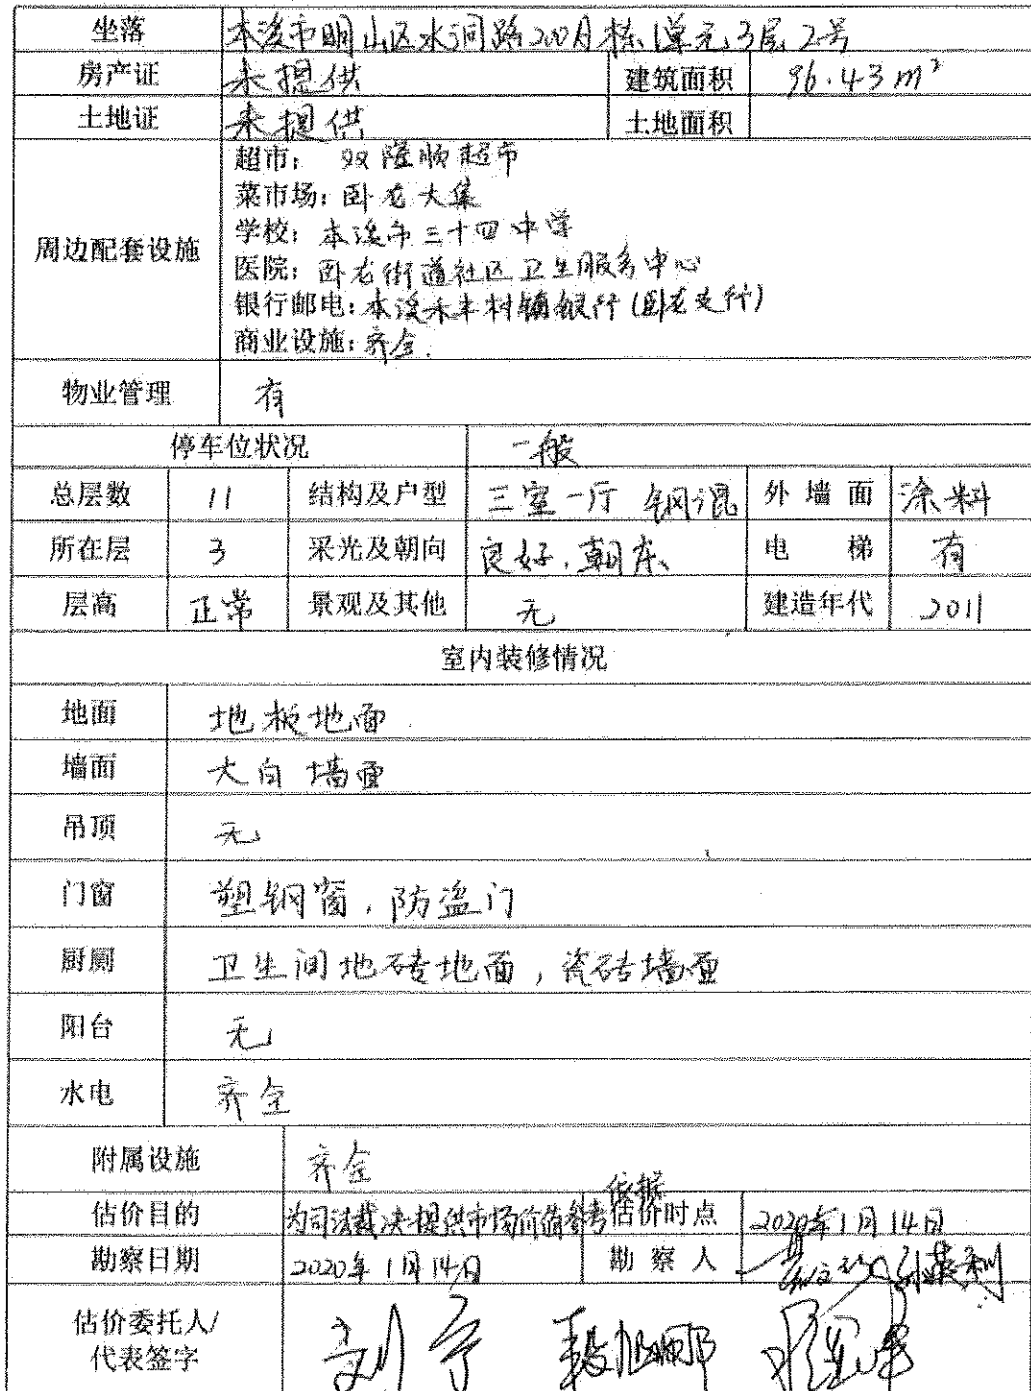 坐落 本溪市明山区水洞路200A栋1单元3层2号
房产证 未提供 建筑面积 96.43m²
土地证 未提供 土地面积
周边配套设施
超市：双隆顺超市
菜市场：卧龙大集
学校：本溪市三十四中学
医院：卧龙街道社区卫生服务中心
银行邮电：本溪禾丰村镇银行(卧龙支行)
商业设施：齐全.
物业管理 有
停车位状况 一般
总层数 11 结构及户型 三室一厅 钢混 外墙面 涂料
所在层 3 采光及朝向 良好.朝东 电梯 有
层高 正常 景观及其他 无 建造年代 2011
室内装修情况
地面 地板地面
墙面 大白墙面
吊顶 无
门窗 塑钢窗，防盗门
厨厕 卫生间地砖地面，瓷砖墙面
阳台 无
水电 齐全
附属设施 齐全
依据
估价目的 为司法裁决提供市场价值参考 估价时点 2020年1月14日
勘察日期 2020年1月14日 勘察人
估价委托人/
代表签字 刘宁